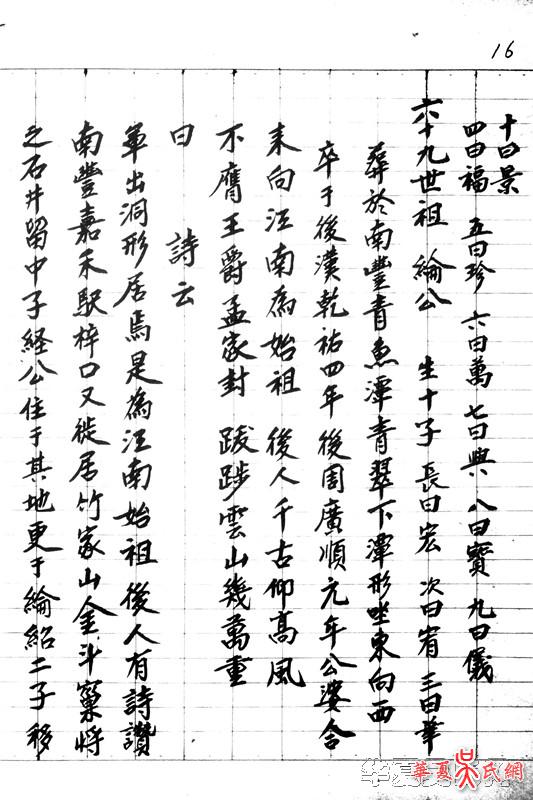 16
之石井留中子経公住于其地更于綸紹二子移
南豐嘉禾馭梓口又徙居竹家山金斗窠將
軍出洞形居焉是為江南始祖後人有詩讚
曰 詩云
不膺王爵孟家封 跋涉雲山幾萬重
来向江南為始祖 後人千古仰高風
卒于後漢乾祐四年後周廣順元年公婆合
葬於南豐青魚潭青翠下潭形坐東向西
六十九世祖 綸公 生十子 長曰宏 次曰宥 三曰華
四曰福 五曰珍 六曰萬 七曰興 八曰寶 九曰儀
十曰景
華夏吳氏網